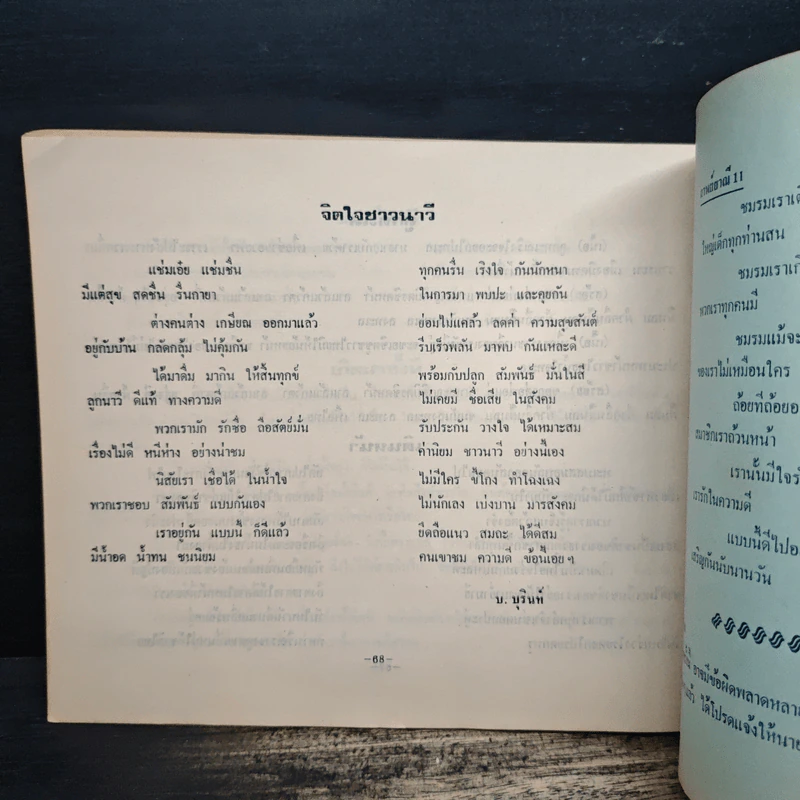 จิตใจชาวนาวี
แช่มเอ๋ย แช่มชื่น ทุกคนรื่น เริงใจ กันนักหนา
มีแต่สุข สดชื่น รื่นกายา ในการมา พบปะ และคุยกัน
ต่างคนต่าง เกษียณ ออกมาแล้ว ย่อมไม่แคล้ว ลดค่า ความสุขสันต์
อยู่กับบ้าน กลัดกลุ้ม ไม่คุ้มกัน รีบเร็วพลัน มาพบ กันแหละดี
ได้มาดื่ม มากิน ให้สิ้นทุกข์ พร้อมกับปลุก สัมพันธ์ มั่นในสี
ลูกนาวี ดีแท้ ทางความดี ไม่เคยมี ชื่อเสีย ในสังคม
พวกเรามัก รักชื่อ ถือสัตย์มั่น รับประกัน วางใจ ได้เหมาะสม
เรื่องไม่ดี หนีห่าง อย่างน่าชม ค่านิยม ชาวนาวี อย่างนี้เอง
นิสัยเรา เชื่อได้ ในน้ำใจ ไม่มีใคร ขี้โกง ทำโฉงเฉง
พวกเราชอบ สัมพันธ์ แบบกันเอง ไม่นักเลง เบ่งบาน มารสังคม
เราอยู่กัน แบบนี้ ก็ดีแล้ว ยึดถือแนว สมถะ ได้ดีสม
มีน้ำอด น้ำทน ชนนิยม คนเขาชม ความดี ข้อนี้เอยฯ
บ. บุรินท์
-68-
กาพย์ยานี 11
ชมรมเราเ
ใหญ่เด็กทุกท่านสน
ชมรมเราเ
พวกเราทุกคนมี
ชมรมแม้จะ
ของเราไม่เหมือนใคร
ถ้อยทีถ้อยอ
สมาชิกเราถ้วนหน้า
เรานั้นมีใจรั
เรารักในความดี
แบบนี้ดีไปอ
เจริญกันนับนานวัน
อาจมีข้อผิดพลาดหลา
แล้ว ได้โปรดแจ้งให้นาย